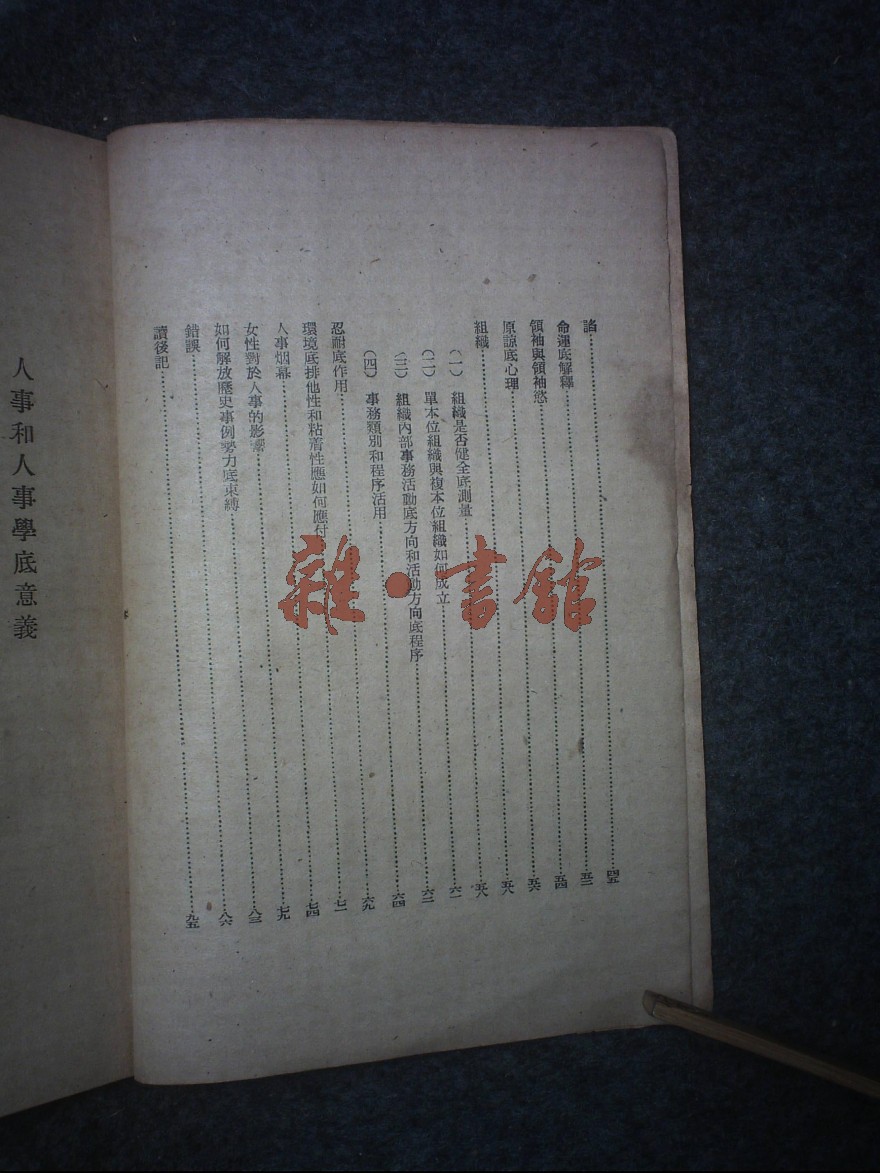 諂……四五
命運底解釋……五三
領袖與領袖慾……五四
原諒底心理……五六
組織……五八
(一) 組織是否健全底測量……五八
(二) 單本位組織與複本位組織如何成立……六一
(三) 組織內部事務活動底方向和活動方向底程序……六二
(四) 事務類別和程序活用……六四
忍耐底作用……六九
環境底排他性和粘着性應如何應付……七一
人事烟幕……七四
女性對於人事的影響……七九
如何解放歷史事例勢力底束縛……八三
錯誤……八六
讀後記……九五
人事和人事學底意義
雜·書館